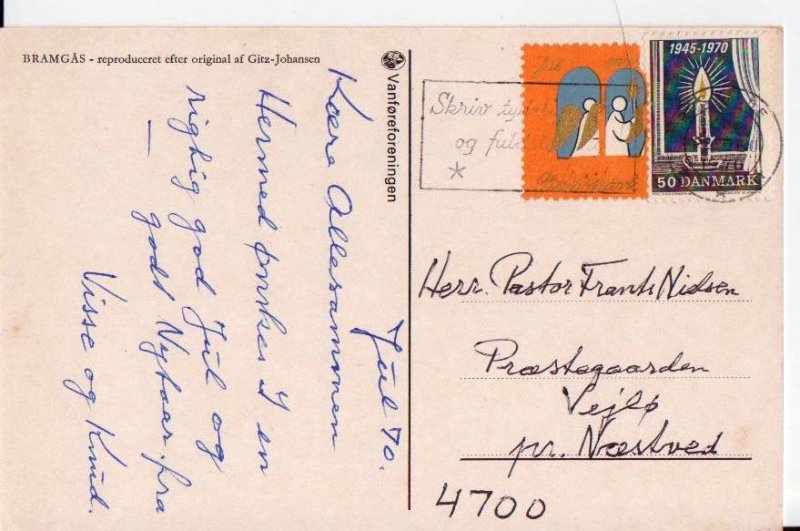 BRAMGÅS - reproduceret efter original af Gitz-Johansen
Vanføreforeningen
Jul 70.
Kære Allesammen
Hermed ønskes I en
rigtig god Jul og
godt Nytaar fra
Visse og Knud.
Jul
Skriv tydel
og fuld
*
1945-1970
50 DANMARK
Herr. Pastor Frants Nielsen
Præstegaarden
Vejlø
pr. Næstved
4700